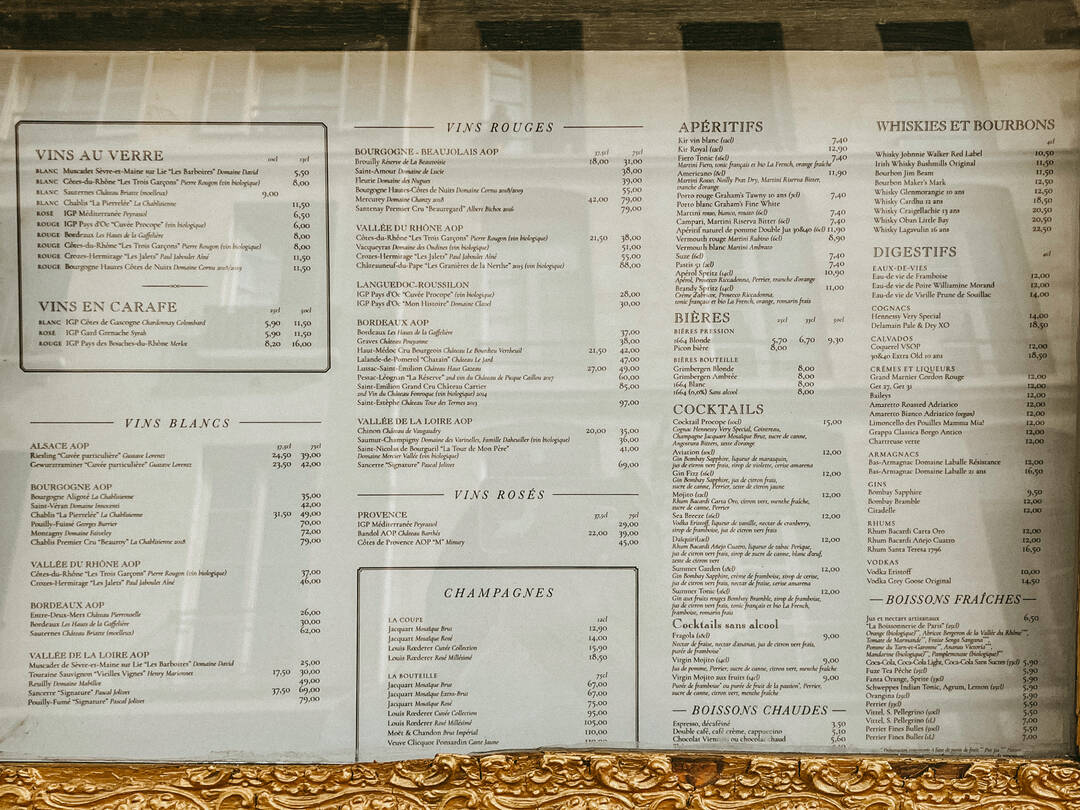 VINS AU VERRE
10cl 15cl
BLANC Muscadet Sèvre-et-Maine sur Lie "Les Barboites" Domaine David 5,50
BLANC Côtes-du-Rhône "Les Trois Garçons" Pierre Rougon (vin biologique) 8,00
BLANC Sauternes Château Briatte (moelleux) 9,00
BLANC Chablis "La Pierrelée" La Chablisienne 11,50
ROSÉ IGP Méditerranée Peyrassol 6,50
ROUGE IGP Pays d'Oc "Cuvée Procope" (vin biologique) 6,00
ROUGE Bordeaux Les Hauts de la Gaffelière 8,00
ROUGE Côtes-du-Rhône "Les Trois Garçons" Pierre Rougon (vin biologique) 8,00
ROUGE Crozes-Hermitage "Les Jalets" Paul Jaboulet Aîné 11,50
ROUGE Bourgogne Hautes Côtes de Nuits Domaine Cornu 2018/2019 11,50
VINS EN CARAFE
25cl 50cl
BLANC IGP Côtes de Gascogne Chardonnay Colombard 5,90 11,50
ROSÉ IGP Gard Grenache Syrah 5,90 11,50
ROUGE IGP Pays des Bouches-du-Rhône Merle 8,20 16,00
VINS BLANCS
ALSACE AOP 37,5cl 75cl
Riesling "Cuvée particulière" Gustave Lorentz 24,50 39,00
Gewurztraminer "Cuvée particulière" Gustave Lorentz 23,50 42,00
BOURGOGNE AOP
Bourgogne Aligoté La Chablisienne 35,00
Saint-Véran Domaine Innocenti 42,00
Chablis "La Pierrelée" La Chablisienne 31,50 49,00
Pouilly-Fuissé Georges Burrier 70,00
Montagny Domaine Faiveley 72,00
Chablis Premier Cru "Beauroy" La Chablisienne 2018 79,00
VALLÉE DU RHÔNE AOP
Côtes-du-Rhône "Les Trois Garçons" Pierre Rougon (vin biologique) 37,00
Crozes-Hermitage "Les Jalets" Paul Jaboulet Aîné 46,00
BORDEAUX AOP
Entre-Deux-Mers Château Pierrouselle 26,00
Bordeaux Les Hauts de la Gaffelière 30,00
Sauternes Château Briatte (moelleux) 62,00
VALLÉE DE LA LOIRE AOP
Muscadet de Sèvre-et-Maine sur Lie "Les Barboites" Domaine David 25,00
Touraine Sauvignon "Vieilles Vignes" Henry Marionnet 17,50 30,00
Reuilly Domaine Mabillot 49,00
Sancerre "Signature" Pascal Jolivet 37,50 69,00
Pouilly-Fumé "Signature" Pascal Jolivet 79,00
VINS ROUGES
BOURGOGNE - BEAUJOLAIS AOP 37,5cl 75cl
Brouilly Réserve de La Beauvoisie 18,00 31,00
Saint-Amour Domaine de Lucie 38,00
Fleurie Domaine des Nugues 39,00
Bourgogne Hautes-Côtes de Nuits Domaine Cornu 2018/2019 55,00
Mercurey Domaine Chanzy 2018 42,00 79,00
Santenay Premier Cru "Beauregard" Albert Bichot 2016 79,00
VALLÉE DU RHÔNE AOP
Côtes-du-Rhône "Les Trois Garçons" Pierre Rougon (vin biologique) 21,50 38,00
Vacqueyras Domaine des Ondines (vin biologique) 51,00
Crozes-Hermitage "Les Jalets" Paul Jaboulet Aîné 55,00
Châteauneuf-du-Pape "Les Granières de la Nerthe" 2015 (vin biologique) 88,00
LANGUEDOC-ROUSSILLON
IGP Pays d'Oc "Cuvée Procope" (vin biologique) 28,00
IGP Pays d'Oc "Mon Histoire" Domaine Clavel 30,00
BORDEAUX AOP
Bordeaux Les Hauts de la Gaffelière 37,00
Graves Château Pouyanne 38,00
Haut-Médoc Cru Bourgeois Château Le Bourdieu Vertheuil 21,50 42,00
Lalande-de-Pomerol "Chatain" Château Le Jard 47,00
Lussac-Saint-Emilion Château Haut Gazeau 27,00 49,00
Pessac-Léognan "La Réserve" 2nd vin du Château de Picque Caillou 2017 60,00
Saint-Emilion Grand Cru Château Cartier 85,00
2nd Vin du Château Fonroque (vin biologique) 2014
Saint-Estèphe Château Tour des Termes 2013 97,00
VALLÉE DE LA LOIRE AOP
Chinon Château de Vaugaudry 20,00 35,00
Saumur-Champigny Domaine des Varinelles, Famille Daheuiller (vin biologique) 36,00
Saint-Nicolas de Bourgueil "La Tour de Mon Père" 41,00
Domaine Mercier Vallée (vin biologique)
Sancerre "Signature" Pascal Jolivet 69,00
VINS ROSÉS
PROVENCE 37,5cl 75cl
IGP Méditerranée Peyrassol 29,00
Bandol AOP Château Barthès 22,00 39,00
Côtes de Provence AOP "M" Minuty 45,00
CHAMPAGNES
LA COUPE 12cl
Jacquart Mosaïque Brut 12,90
Jacquart Mosaïque Rosé 14,00
Louis Rœderer Cuvée Collection 15,90
Louis Rœderer Rosé Millésimé 18,50
LA BOUTEILLE 75cl
Jacquart Mosaïque Brut 67,00
Jacquart Mosaïque Extra-Brut 67,00
Jacquart Mosaïque Rosé 75,00
Louis Rœderer Cuvée Collection 95,00
Louis Rœderer Rosé Millésimé 105,00
Moët & Chandon Brut Impérial 110,00
Veuve Clicquot Ponsardin Carte Jaune 110,00
APÉRITIFS
Kir vin blanc (12cl) 7,40
Kir Royal (12cl) 12,90
Fiero Tonic (16cl) 7,40
Martini Fiero, tonic français et bio La French, orange fraîche
Americano (6cl) 11,90
Martini Rosso, Noilly Prat Dry, Martini Riserva Bitter,
tranche d'orange
Porto rouge Graham's Tawny 10 ans (7cl) 7,40
Porto blanc Graham's Fine White
Martini rosso, bianco, rosato (6cl) 7,40
Campari, Martini Riserva Bitter (6cl) 7,40
Apéritif naturel de pomme Double Jus 30&40 (6cl) 11,90
Vermouth rouge Martini Rubino (6cl) 8,90
Vermouth blanc Martini Ambrato
Suze (6cl) 7,40
Pastis 51 (2cl) 7,40
Apérol Spritz (14cl) 10,90
Apérol, Prosecco Riccadonna, Perrier, tranche d'orange
Brandy Spritz (14cl) 11,00
Crème d'abricot, Prosecco Riccadonna,
tonic français et bio La French, orange, romarin frais
BIÈRES 25cl 33cl 50cl
BIÈRES PRESSION
1664 Blonde 5,70 6,70 9,30
Picon bière 8,00
BIÈRES BOUTEILLE
Grimbergen Blonde 8,00
Grimbergen Ambrée 8,00
1664 Blanc 8,00
1664 (0,0%) Sans alcool 8,00
COCKTAILS
Cocktail Procope (10cl) 15,00
Cognac Hennessy Very Special, Cointreau,
Champagne Jacquart Mosaïque Brut, sucre de canne,
Angostura Bitters, zeste d'orange
Aviation (9cl) 12,00
Gin Bombay Sapphire, liqueur de marasquin,
jus de citron vert frais, sirop de violette, cerise amarena
Gin Fizz (16cl) 12,00
Gin Bombay Sapphire, jus de citron frais,
sucre de canne, Perrier, zeste de citron jaune
Mojito (14cl) 12,00
Rhum Bacardi Carta Oro, citron vert, menthe fraîche,
sucre de canne, Perrier
Sea Breeze (16cl) 12,00
Vodka Eristoff, liqueur de vanille, nectar de cranberry,
sirop de framboise, jus de citron vert frais
Daïquiri(12cl) 12,00
Rhum Bacardi Añejo Cuatro, liqueur de tabac Perique,
jus de citron vert frais, sirop de sucre de canne, blanc d'œuf,
zeste de citron vert
Summer Garden (18cl) 12,00
Gin Bombay Sapphire, crème de framboise, sirop de cerise,
jus de citron vert frais, nectar de fraise, cerise amarena
Summer Tonic (16cl) 12,00
Gin aux fruits rouges Bombay Bramble, sirop de framboise,
jus de citron vert frais, tonic français et bio La French,
framboise, romarin frais
Cocktails sans alcool
Fragola (18cl) 9,00
Nectar de fraise, nectar d'ananas, jus de citron vert frais,
purée de framboise
Virgin Mojito (14cl) 9,00
Jus de pomme, Perrier, sucre de canne, citron vert, menthe fraîche
Virgin Mojito aux fruits (14cl) 9,00
Purée de framboise ou purée de fruit de la passion, Perrier,
sucre de canne, citron vert, menthe fraîche
BOISSONS CHAUDES
Espresso, décaféiné 3,50
Double café, café crème, cappuccino 5,10
Chocolat Viennois ou chocolat chaud 5,60
WHISKIES ET BOURBONS
4cl
Whisky Johnnie Walker Red Label 10,50
Irish Whisky Bushmills Original 11,50
Bourbon Jim Beam 11,50
Bourbon Maker's Mark 12,50
Whisky Glenmorangie 10 ans 12,50
Whisky Cardhu 12 ans 18,50
Whisky Craigellachie 13 ans 20,50
Whisky Oban Little Bay 20,50
Whisky Lagavulin 16 ans 22,50
DIGESTIFS 4cl
EAUX-DE-VIES
Eau-de-vie de Framboise 12,00
Eau-de-vie de Poire Williamine Morand 12,00
Eau-de-vie de Vieille Prune de Souillac 14,00
COGNACS
Hennessy Very Special 14,00
Delamain Pale & Dry XO 18,50
CALVADOS
Coquerel VSOP 12,00
30&40 Extra Old 10 ans 18,50
CRÈMES ET LIQUEURS
Grand Marnier Cordon Rouge 12,00
Get 27, Get 31 12,00
Baileys 12,00
Amaretto Rossarted Adriatico 12,00
Amaretto Bianco Adriatico (vegan) 12,00
Limoncello des Pouilles Mamma Mia! 12,00
Grappa Classica Borgo Antico 12,00
Chartreuse verte 12,00
ARMAGNACS
Bas-Armagnac Domaine Laballe Résistance 12,00
Bas-Armagnac Domaine Laballe 21 ans 16,50
GINS
Bombay Sapphire 9,50
Bombay Bramble 12,00
Citadelle 12,00
RHUMS
Rhum Bacardi Carta Oro 12,00
Rhum Bacardi Añejo Cuatro 12,00
Rhum Santa Teresa 1796 16,50
VODKAS
Vodka Eristoff 10,00
Vodka Grey Goose Original 14,50
BOISSONS FRAÎCHES
Jus et nectars artisanaux 6,50
"La Boissonnerie de Paris" (25cl)
Orange (biologique), Abricot Bergeron de la Vallée du Rhône,
Tomate de Marmande, Fraise Senga Sengana,
Pomme du Tarn-et-Garonne, Ananas Victoria,
Mandarine (biologique), Pamplemousse (biologique)
Coca-Cola, Coca-Cola Light, Coca-Cola Sans Sucres (33cl) 5,90
Fuze Tea Pêche (25cl) 5,90
Fanta Orange, Sprite (25cl) 5,90
Schweppes Indian Tonic, Agrum, Lemon (25cl) 5,90
Orangina (25cl) 5,90
Perrier (33cl) 5,90
Vittel, S. Pellegrino (50cl) 5,50
Vittel, S. Pellegrino (1L) 7,00
Perrier Fines Bulles (50cl) 5,50
Perrier Fines Bulles (1L) 7,00